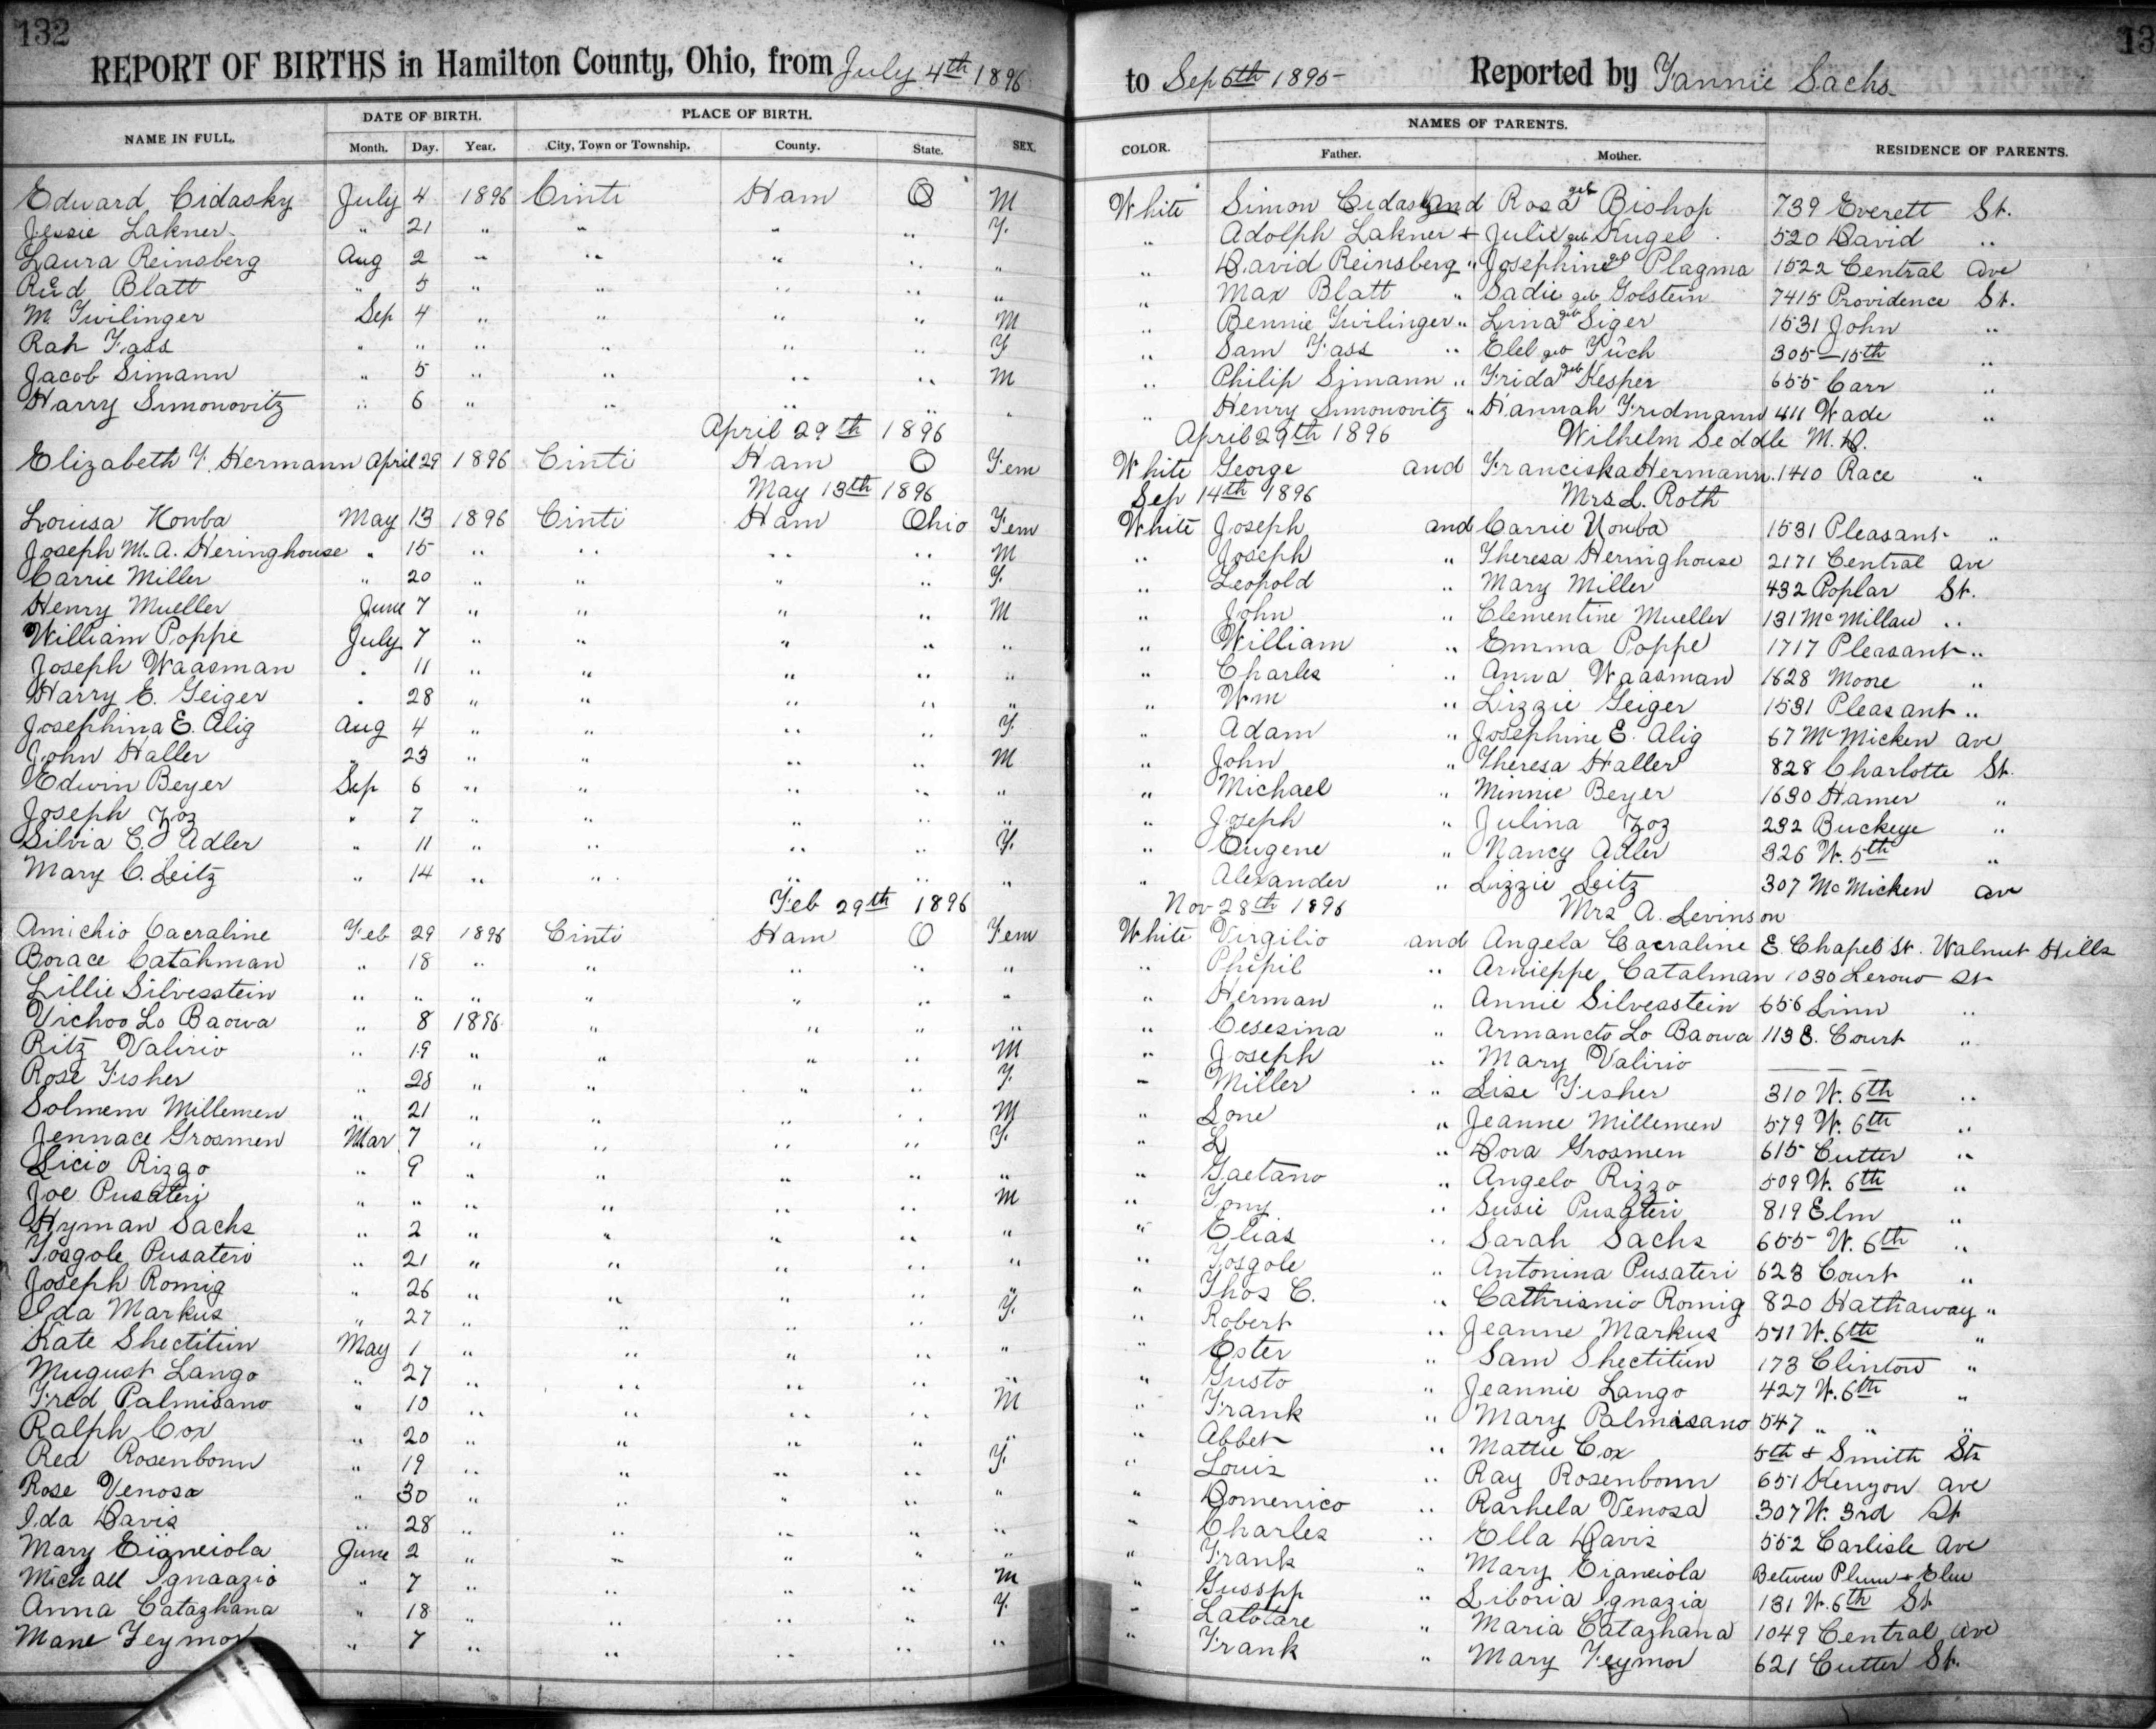 132
REPORT OF BIRTHS in Hamilton County, Ohio, from July 4th 1896
NAME IN FULL. DATE OF BIRTH. PLACE OF BIRTH. SEX.
Month. Day. Year. City, Town or Township. County. State.
Edward Cidasky July 4 1896 Cinti Ham O M
Jessie Lakner " 21 " " " " F.
Laura Reinsberg Aug 2 " " " " "
Blatt " 5 " " " " "
M. Twilinger Sep 4 " " " " M
Rah Fass " " " " " " F
Jacob Simann " 5 " " " " M
Harry Simonovitz " 6 " " " " "
April 29th 1896
Elizabeth F. Hermann April 29 1896 Cinti Ham O Fem
May 13th 1896
Louisa Kouba May 13 1896 Cinti Ham Ohio Fem
Joseph M. A. Heringhouse " 15 " " " " M
Carrie Miller " 20 " " " " F.
Henry Mueller June 7 " " " " M
William Poppe July 7 " " " " "
Joseph Waasman " 11 " " " " "
Harry E. Geiger " 28 " " " " "
Josephina E. Alig Aug 4 " " " " F.
John Haller " 23 " " " " M
Edwin Beyer Sep 6 " " " " "
Joseph Zoz " 7 " " " " "
Silvia C. Adler " 11 " " " " F.
Mary C. Leitz " 14 " " " " "
Feb 29th 1896
Amichio Cacraline Feb 29 1896 Cinti Ham O Fem
Borace Catahman " 18 " " " " "
Lillie Silvesstein " " " " " " "
Vichoo Lo Baowa " 8 1896 " " " "
Ritz Valirio " 19 " " " " M
Rose Fisher " 28 " " " " F
Solmem Millemen " 21 " " " " M
Jennace Grosmen Mar 7 " " " " F.
Licio Rizzo " 9 " " " " "
Joe Pusateri " " " " " " M
Hyman Sachs " 2 " " " " "
Fosgole Pusateri " 21 " " " " "
Joseph Romig " 26 " " " " "
Ida Markus " 27 " " " " F.
Kate Shectitun May 1 " " " " "
Mugust Lango " 27 " " " " "
Fred Palmisano " 10 " " " " M
Ralph Cox " 20 " " " " "
Rea Rosenbonn " 19 " " " " F.
Rose Venosa " 30 " " " " "
Ida Davis " 28 " " " " "
Mary Eianciola June 2 " " " " "
Michall Ignaazio " 7 " " " " M
Anna Catazhana " 18 " " " " F
Mane Feymor " 7 " " " " "
13
to Sep 6th 1895 Reported by Fannie Sachs
COLOR. NAMES OF PARENTS. RESIDENCE OF PARENTS.
Father. Mother.
White Simon Cidasky and Rosa geb Bishop 739 Everett St.
" Adolph Lakner + Julie geb Kugel 520 David "
" David Reinsberg " Josephine geb Plagma 1522 Central Ave
" Max Blatt " Sadie geb Golstein 7415 Providence St.
" Bennie Twilinger " Lina geb Siger 1531 John "
" Sam Fass " Elel geb Fuch 305-15th "
" Philip Simann " Frida geb Kesper 655 Carr "
" Henry Simonovitz " Hannah Fridmann 411 Wade "
April 29th 1896 Wilhelm Seddle M.D.
White George and Franciska Hermann 1410 Race "
Sep 14th 1896 Mrs L. Roth
White Joseph and Carrie Kouba 1531 Pleasant "
" Joseph " Theresa Heringhouse 2171 Central Ave
" Leopold " Mary Miller 432 Poplar St.
" John " Clementine Mueller 131 McMillan "
" William " Emma Poppe 1717 Pleasant "
" Charles " Anna Waasman 1628 Moore "
" Wm " Lizzie Geiger 1531 Pleasant "
" Adam " Josephine E. Alig 67 McMicken Ave
" John " Theresa Haller 828 Charlotte St.
" Michael " Minnie Beyer 1630 Hamer "
" Joseph " Julina Zoz 232 Buckeye "
" Eugene " Nancy Adler 326 W. 5th "
" Alexander " Lizzie Leitz 307 McMicken Av
Nov 28th 1896 Mrs A. Levinson
White Virgilio and Angela Cacraline E. Chapel St. Walnut Hills
" Phipil " Arnieppe Catalman 1030 Lerouo St
" Herman " Annie Silvesstein 656 Linn "
" Cesesina " Armancto Lo Baowa 1138. Court "
" Joseph " Mary Valirio
" Miller " Lise Fisher 310 W. 6th "
" Lone " Jeanne Millemen 579 W. 6th "
" L " Dora Grosmen 615 Cutter "
" Gaetano " Angelo Rizzo 509 W. 6th "
" Tony " Susie Pusateri 819 Elm "
" Elias " Sarah Sachs 655 W. 6th "
" Fosgole " Antonina Pusateri 628 Court "
" Thos C. " Cathrisnio Romig 820 Hathaway "
" Robert " Jeanne Markus 571 W. 6th "
" Ester " Sam Shectitun 173 Clinton "
" Gusto " Jeannie Lango 427 W. 6th "
" Frank " Mary Palmisano 547 " " "
" Abbet " Mattie Cox 5th & Smith Sts
" Louis " Ray Rosenbonn 651 Kenyon Ave
" Domenico " Rarhela Venosa 307 W. 3rd St
" Charles " Ella Davis 552 Carlisle Ave
" Frank " Mary Eianciola Between Plum & Elm
" Gusspp " Liboria Ignazia 131 W. 6th St
" Latotare " Maria Catazhana 1049 Central Ave
" Frank " Mary Feymor 621 Cutter St.